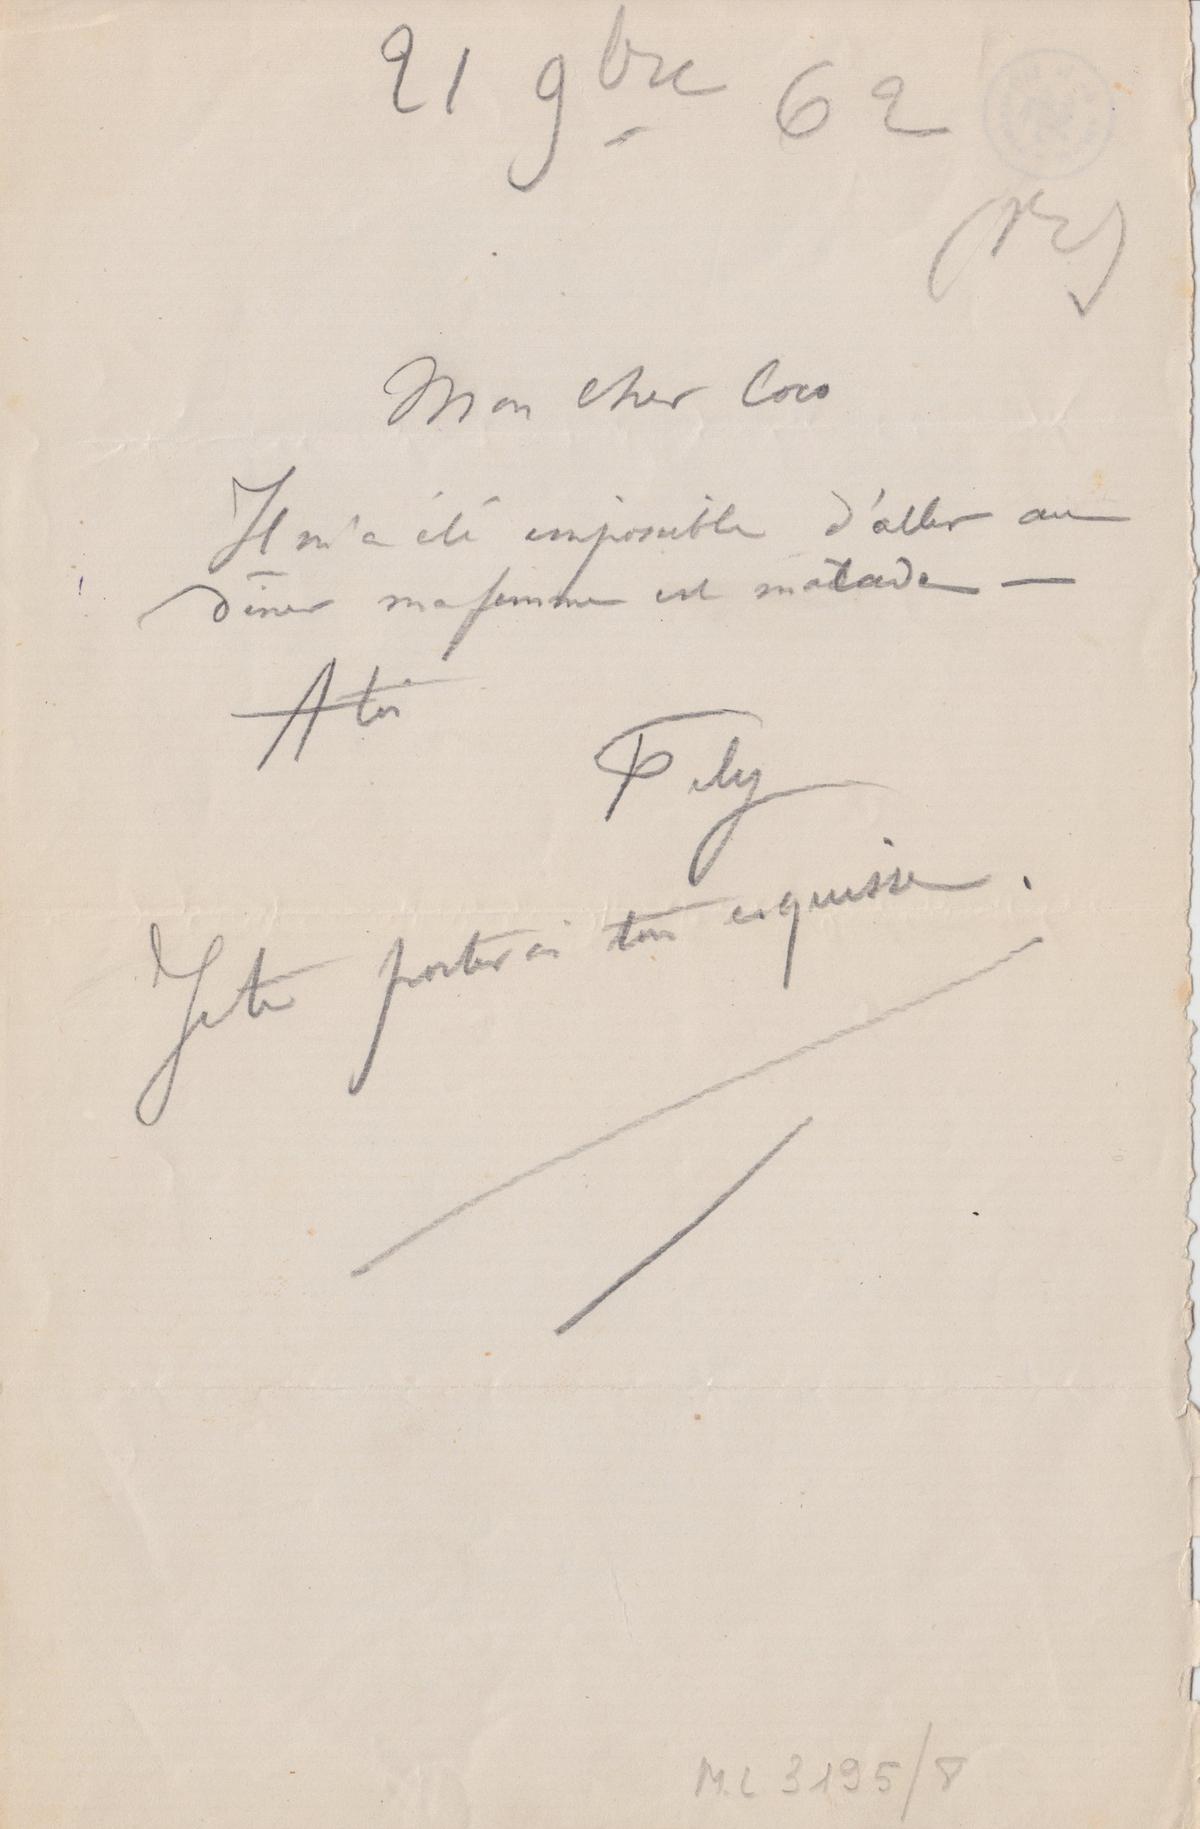 21 9bre 62
Mon cher Coco
Il m'a été impossible d'aller au
dîner ma femme est malade —
A toi
Fély
Je te porterai ton esquisse .
ML 3195/8